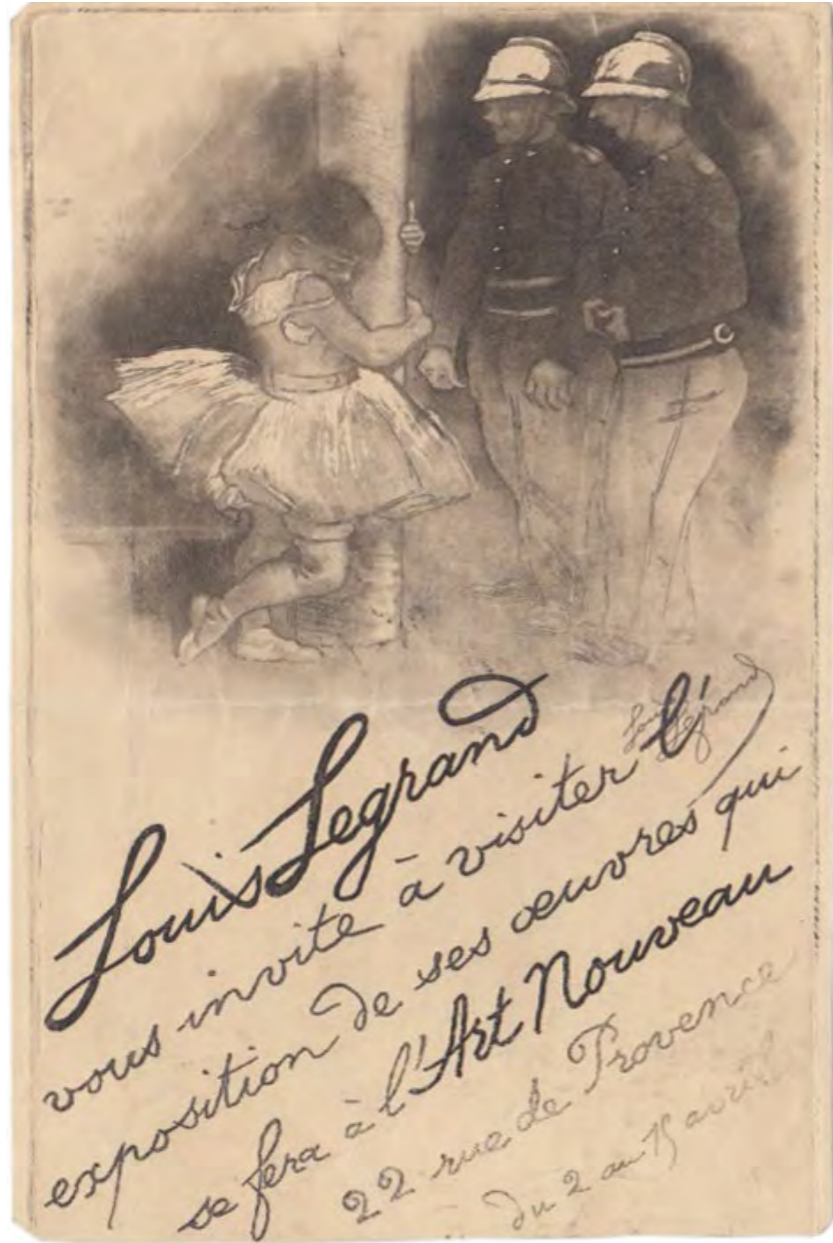 Louis Legrand
Louis Legrand
vous invite à visiter l'
exposition de ses œuvres qui
se fera à l'Art Nouveau
22 rue de Provence
du 2 au 15 avril